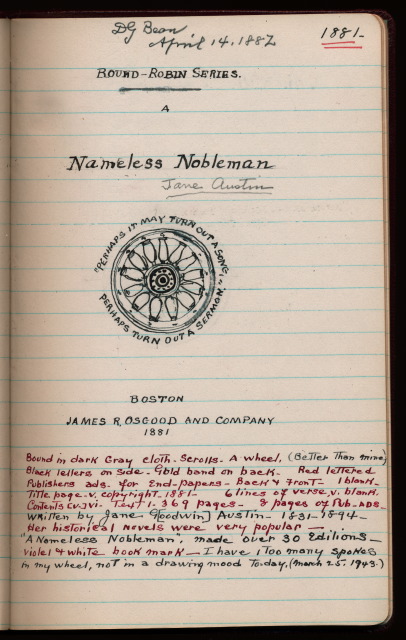 DG Bean
April 14, 1882
1881-
ROUND-ROBIN SERIES.
A
Nameless Nobleman
Jane Austin
"PERHAPS IT MAY TURN OUT A SONG,
PERHAPS TURN OUT A SERMON."
BOSTON
JAMES R. OSGOOD AND COMPANY
1881
Bound in dark Gray cloth. Scrolls. A wheel. (Better than mine)
Black letters on side. Gold band on back. Red lettered
Publishers ads. for End-papers - Back & Front - 1 blank.
Title page. v. copyright. 1881- 6 lines of verse. v. blank.
Contents v. Text 1-369 pages - 9 pages of Pub-ads-
Written by Jane Goodwin Austin - 1831-1894-
Her historical novels were very popular —
"A Nameless Nobleman", made over 30 Editions -
Violet & white book mark - I have 1 Too many spokes
in my wheel, not in a drawing mood Today, (March 25. 1943.)